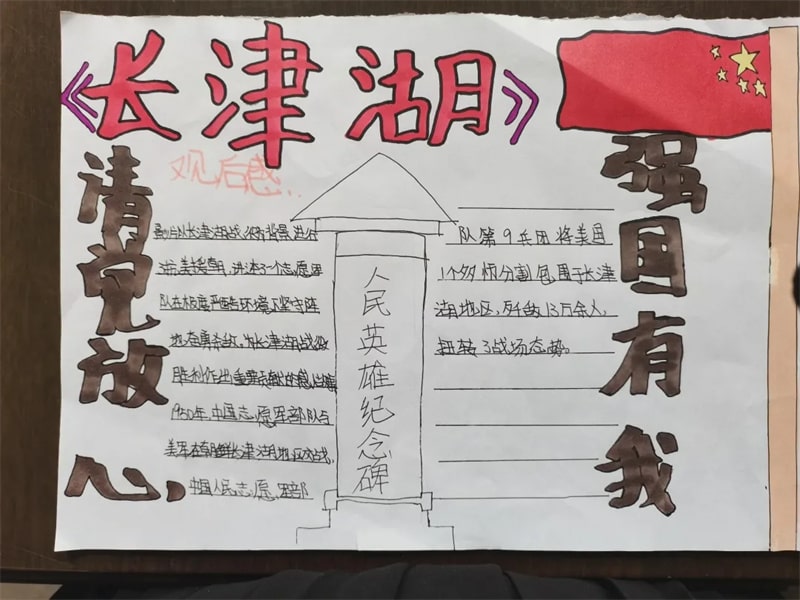 《长津湖》
观后感..
请党放心,
强国有我
人民英雄纪念碑
以长津湖战役为背景进行
抗美援朝,讲述了一个志愿军
队在极度严酷环境下坚守阵
地奋勇杀敌,为长津湖战役
胜利作出重要贡献的感人
1950年,中国志愿军部队与
美军在朝鲜长津湖地区交战,
中国人民志愿军部
队第9兵团将美国
1个多师分割包围于长津
湖地区,歼敌13万余人,
扭转了战场态势